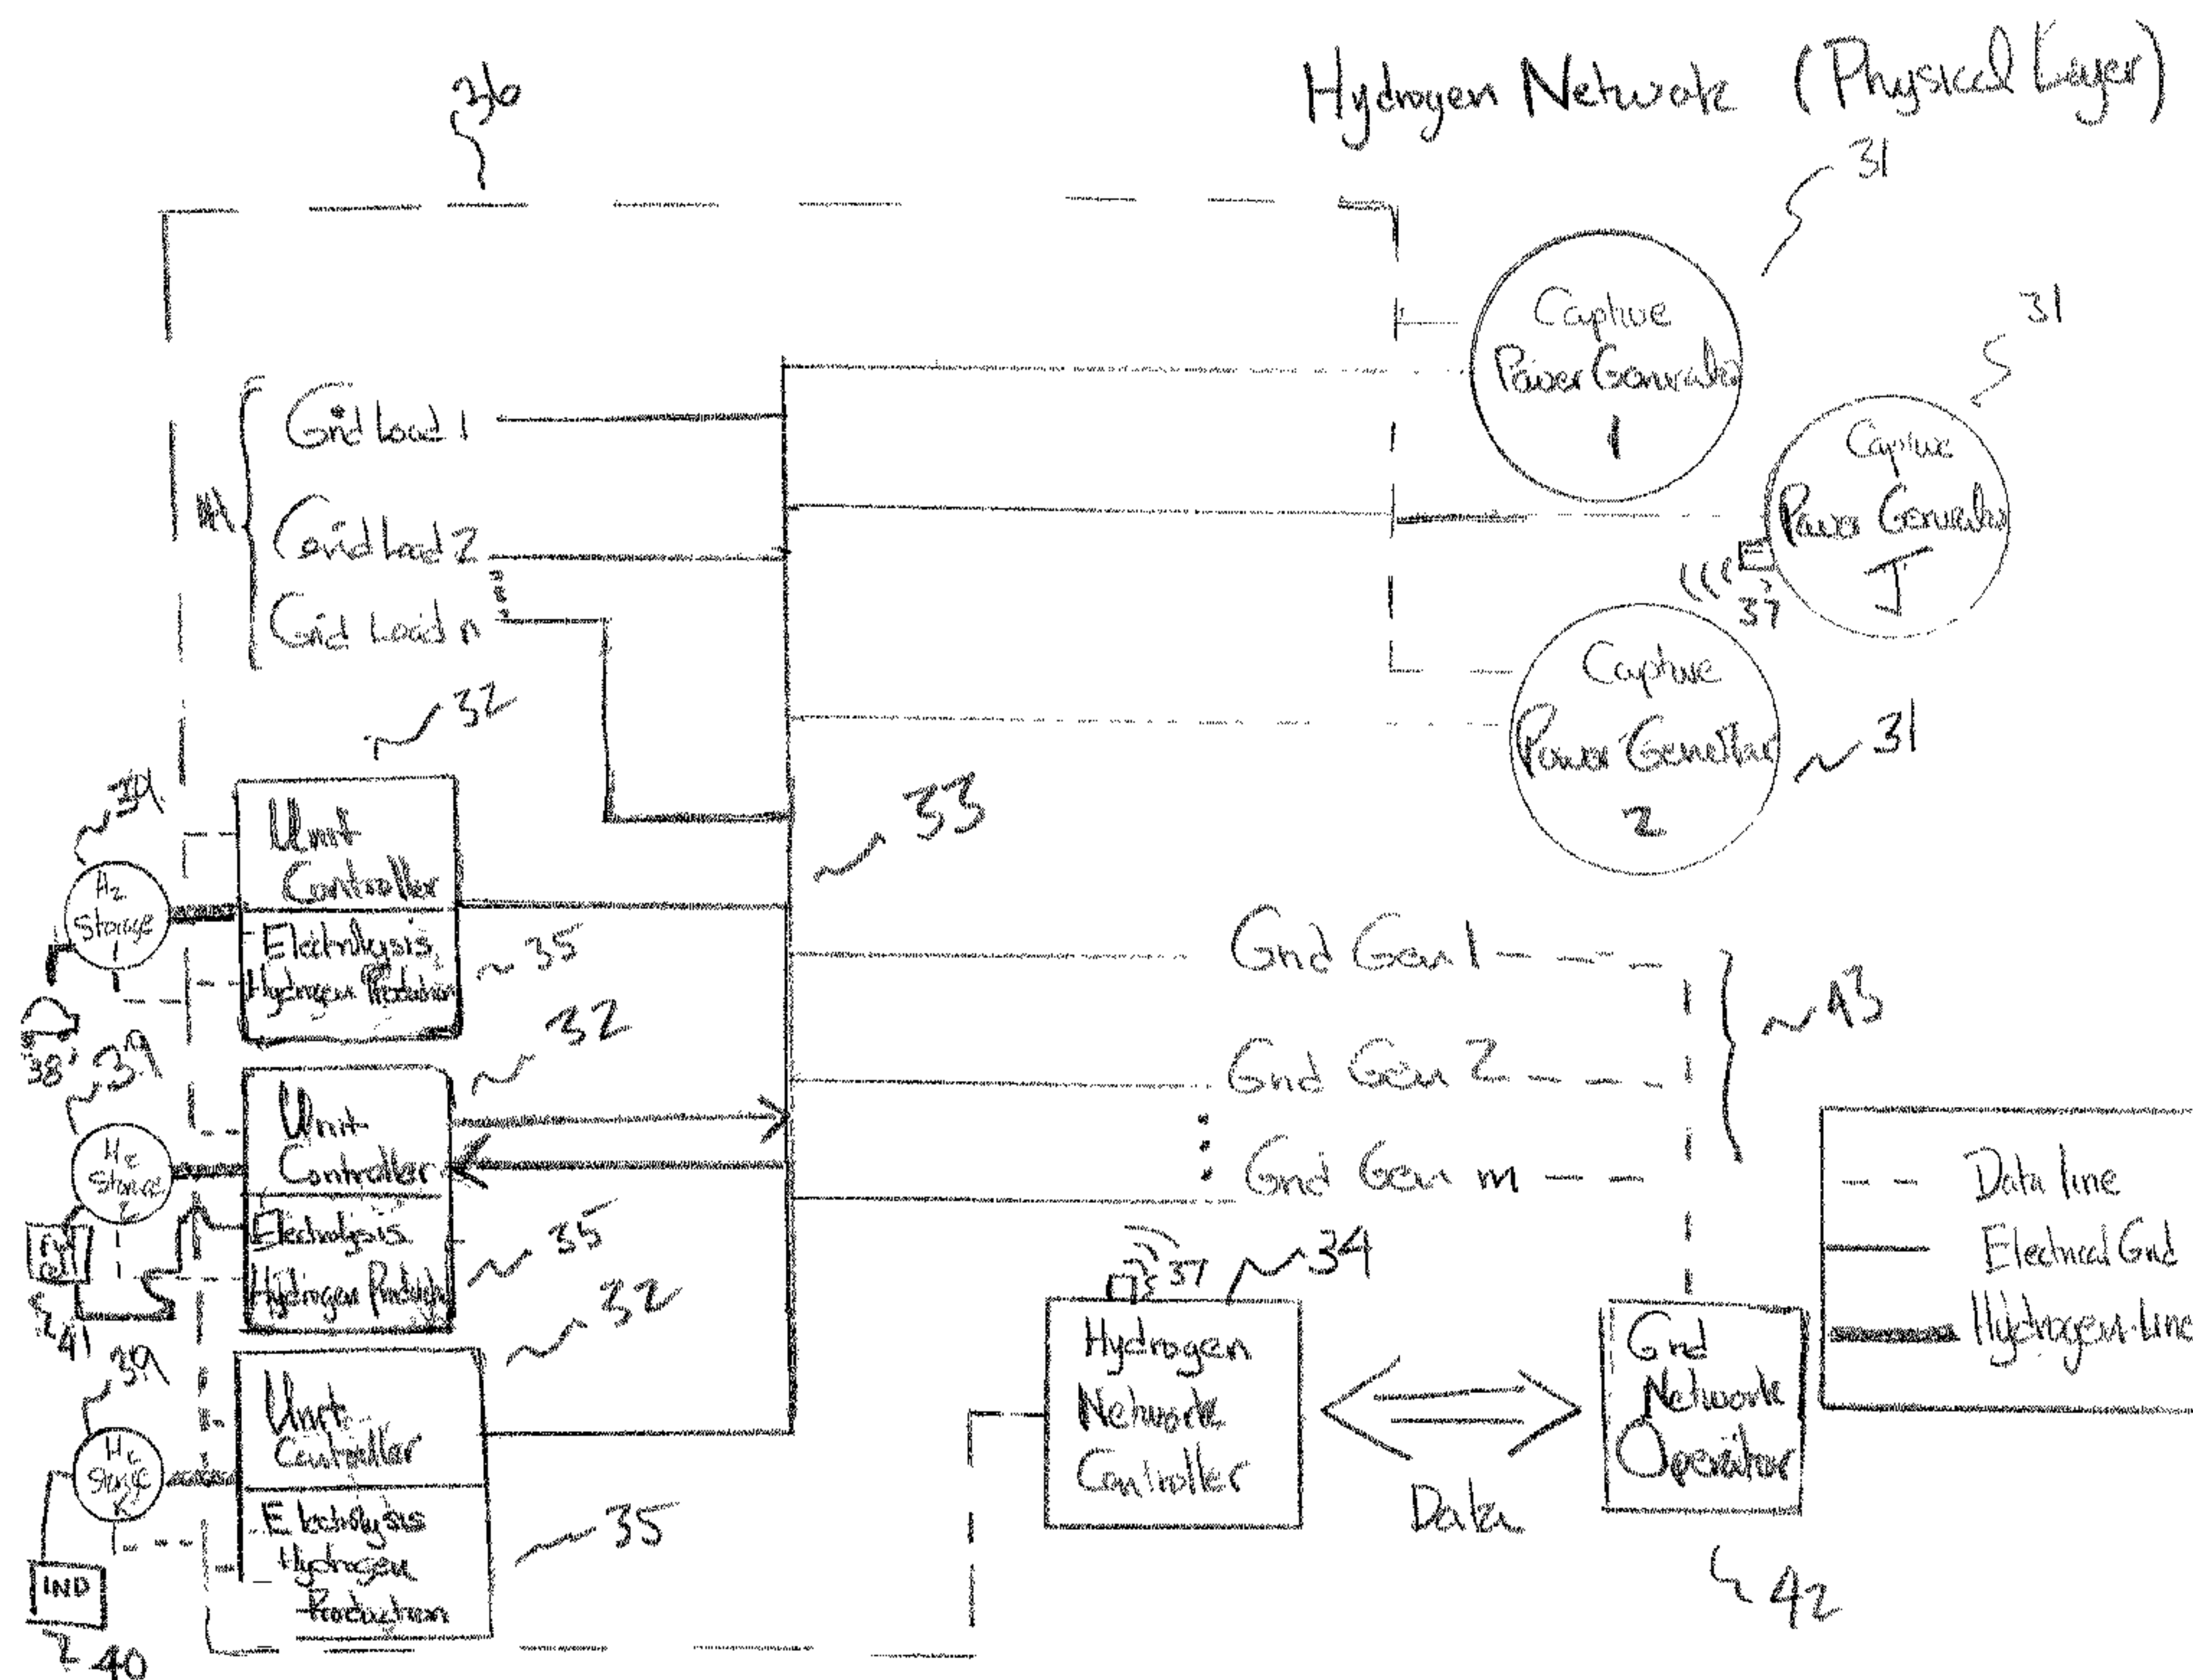 Hydrogen Network (Physical Layer)
36
31
Captive
Power Generator
1
31
Captive
Power Generator
J
37
Captive
Power Generator
2
31
Grid Load 1
Grid Load 2
Grid Load n
32
33
39
H2
Storage
1
Unit
Controller
Electrolysis
Hydrogen Production
35
38
39
32
Unit
Controller
Electrolysis
Hydrogen Production
35
Storage
41
39
32
Unit
Controller
Electrolysis
Hydrogen
Production
35
Storage
K
IND
40
Grid Gen 1
Grid Gen 2
Grid Gen m
43
37
34
Hydrogen
Network
Controller
Data
Grid
Network
Operator
42
Data line
Electrical Grid
Hydrogen line